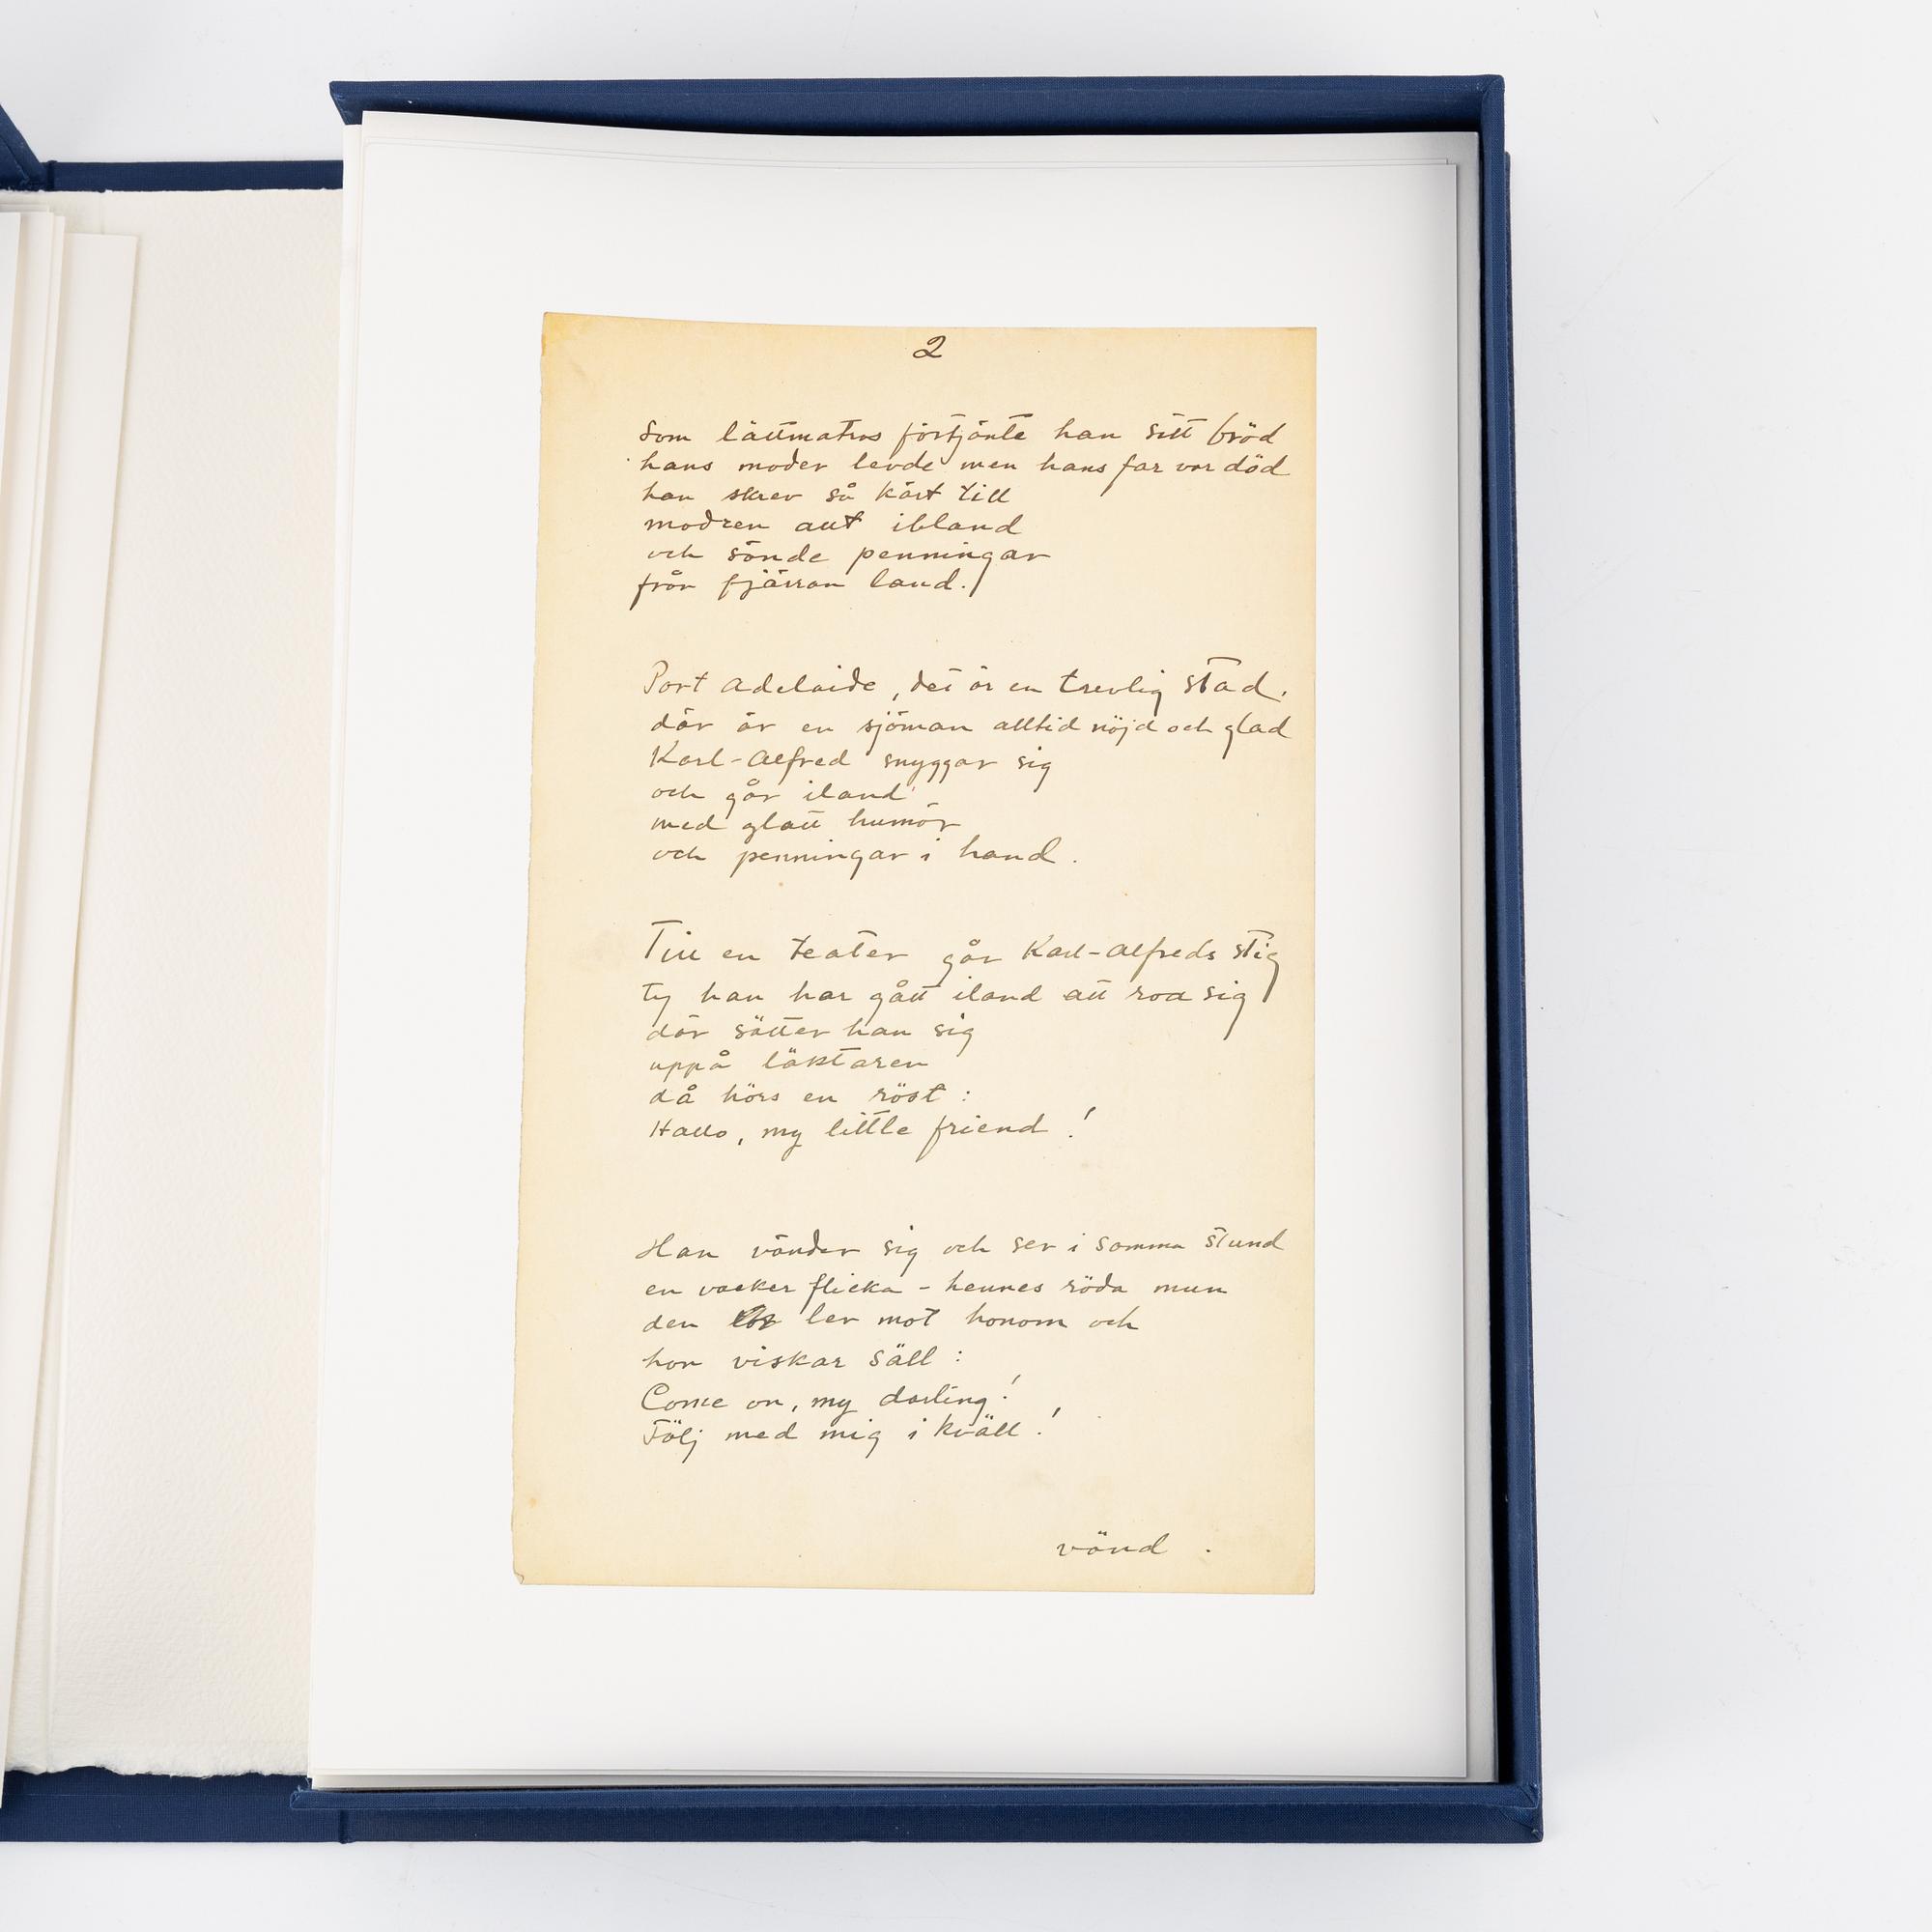 2
Som lättmatros förtjänte han sitt bröd
hans moder levde men hans far var död
han skrev så kärt till
modren allt ibland
och sände penningar
från fjärran land.
Port Adelaide, det är en trevlig stad.
där är en sjöman alltid nöjd och glad
Karl-Alfred snyggar sig
och går iland
med glatt humör
och penningar i hand.
Till en teater går Karl-Alfreds stig
ty han har gått iland att roa sig
där sätter han sig
uppå läktaren
då hörs en röst:
Hallo, my little friend!
Han vänder sig och ser i samma stund
en vacker flicka - hennes röda mun
den ler mot honom och
hon viskar säll:
Come on, my darling!
Följ med mig i kväll!
vänd.